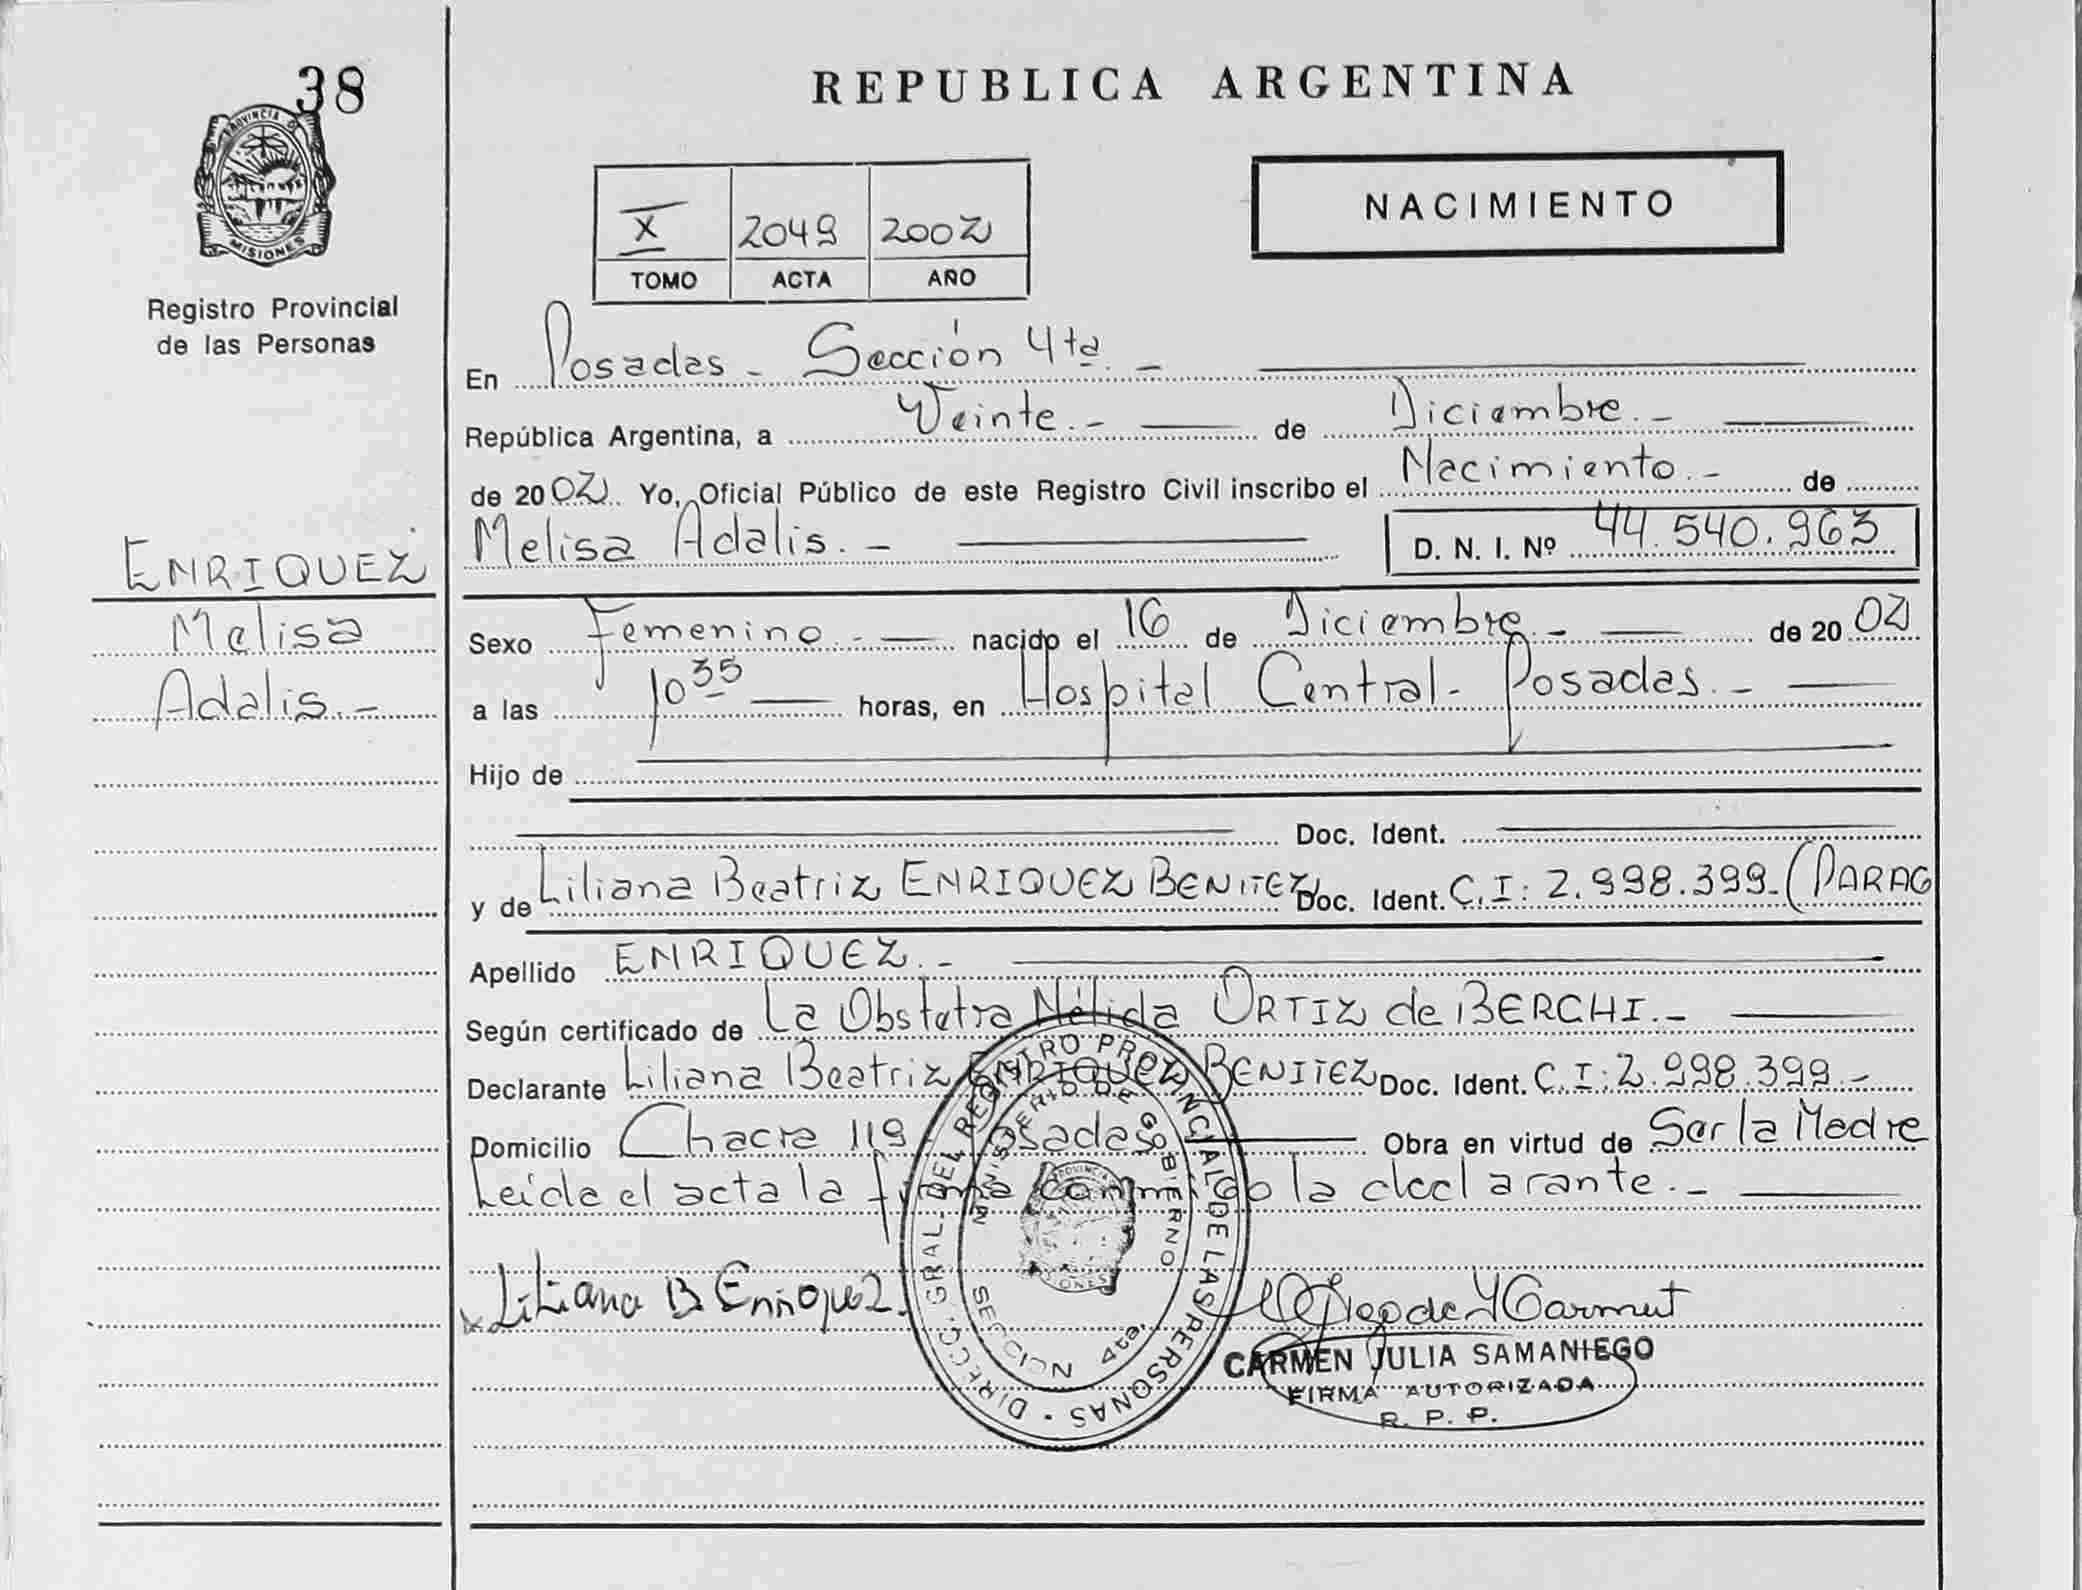 38
PROVINCIA DE
MISIONES
Registro Provincial
de las Personas
ENRIQUEZ
Melisa
Adalis.-
REPUBLICA ARGENTINA
NACIMIENTO
X 2049 2002
TOMO ACTA AÑO
En Posadas - Sección 4ta. -
República Argentina, a Veinte.- de Diciembre.-
de 2002. Yo, Oficial Público de este Registro Civil inscribo el Nacimiento.- de
Melisa Adalis.- D. N. I. Nº 44.540.963
Sexo Femenino.- nacido el 16 de Diciembre.- de 2002
a las 10 35 horas, en Hospital Central- Posadas.-
Hijo de
Doc. Ident.
y de Liliana Beatriz ENRIQUEZ BENITEZ Doc. Ident. C.I: 2.998.399-(PARAG
Apellido ENRIQUEZ.-
Según certificado de La Obstetra Nélida ORTIZ de BERCHI.-
Declarante Liliana Beatriz ENRIQUEZ BENITEZ Doc. Ident. C.I: 2.998.399.-
Domicilio Chacra 119 Posadas Obra en virtud de Ser la Madre
Leída el acta la firma conmigo la declarante.-
Liliana B Enriquez.
DIRECC. GRAL. DEL REGISTRO PROVINCIAL DE LAS PERSONAS
MINISTERIO DE GOBIERNO
SECCION 4ta.
CARMEN JULIA SAMANIEGO
FIRMA AUTORIZADA
R. P. P.